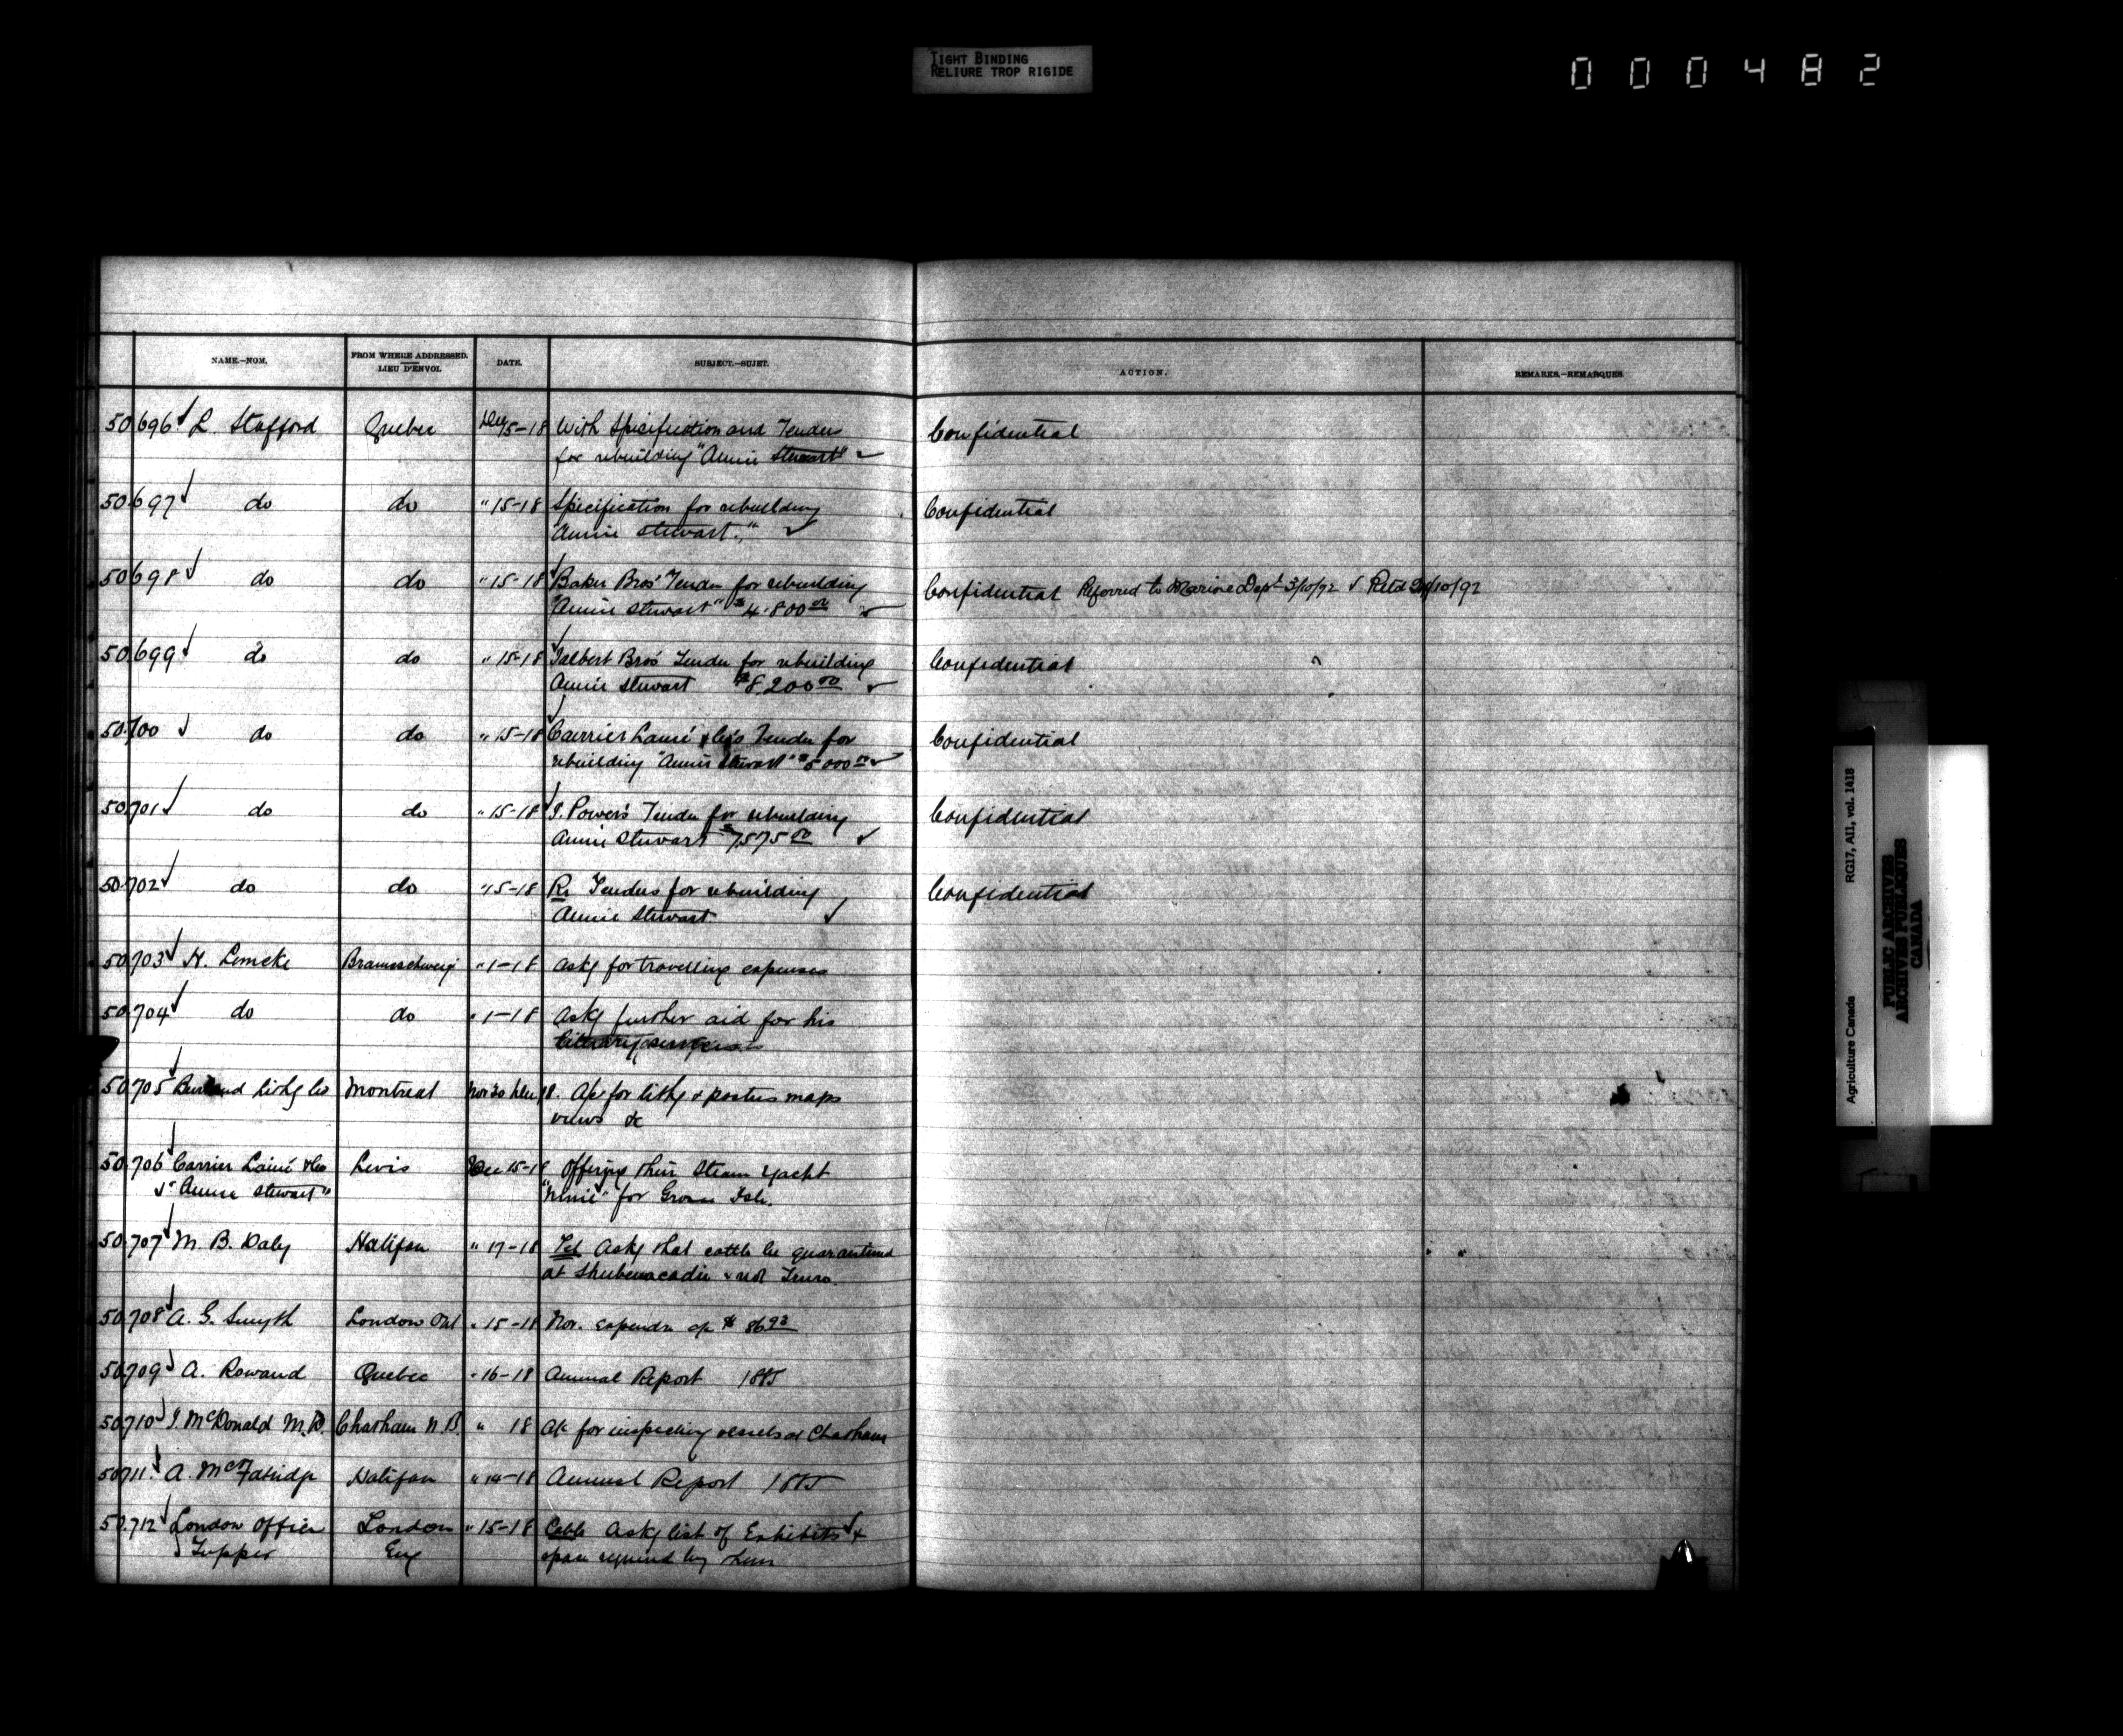 TIGHT BINDING
RELIURE TROP RIGIDE
000482
NAME.—NOM.
FROM WHERE ADDRESSED.
LIEU D'ENVOI.
DATE.
SUBJECT.—SUJET.
ACTION.
REMARKS.—REMARQUES.
50.696 L. Stafford Quebec Dec 15-18 With Specification and Tenders Confidential
for rebuilding "Annie Stewart"
50.697 do do " 15-18 Specification for rebuilding Confidential
"Annie Stewart."
50.698 do do " 15-18 Baker Bros' Tender for rebuilding Confidential Referred to Marine Dept 3/10/92 Retd 24/10/92
"Annie Stewart" $4.800 00
50.699 do do " 15-18 Talbert Bros' Tender for rebuilding Confidential
Annie Stewart $8.200 00
50.700 do do " 15-18 Carrier Lainé & Co's Tender for Confidential
rebuilding "Annie Stewart" $5000 00
50.701 do do " 15-18 J. Power's Tender for rebuilding Confidential
Annie Stewart $7575 00
50.702 do do " 15-18 Re Tenders for rebuilding Confidential
Annie Stewart
50.703 H. Lemcke Braunschweig " 1-18 Askg for travelling expenses
50.704 do do " 1-18 Askg further aid for his
literary
50.705 Lithg Co Montreal Nov 30 Dec 18. a/c for lithg & posters maps
views &c
50.706 Carrier Lainé & Co Levis Dec 15-18 Offering their Steam Yacht
"Annie Stewart" for Grosse Isle.
50.707 M. B. Daly Halifax " 17-18 Tel Askg that cattle be quarantined
at Shubenacadie & not Truro.
50.708 A. G. Smyth London Ont " 15-18 Nov. expendre a/c $ 86 93
50.709 A. Rowand Quebec " 16-18 Annual Report 1885
50.710 J. McDonald M.D. Chatham N.B. " 18 a/c for inspecting vessels at Chatham
50.711 A. McFatridge Halifax " 14-18 Annual Report 1885
50.712 London Office London " 15-18 Cable Askg list of Exhibits &
Tupper Eng space required by them
Agriculture Canada RG17, AII, vol. 1418
PUBLIC ARCHIVES
ARCHIVES PUBLIQUES
CANADA